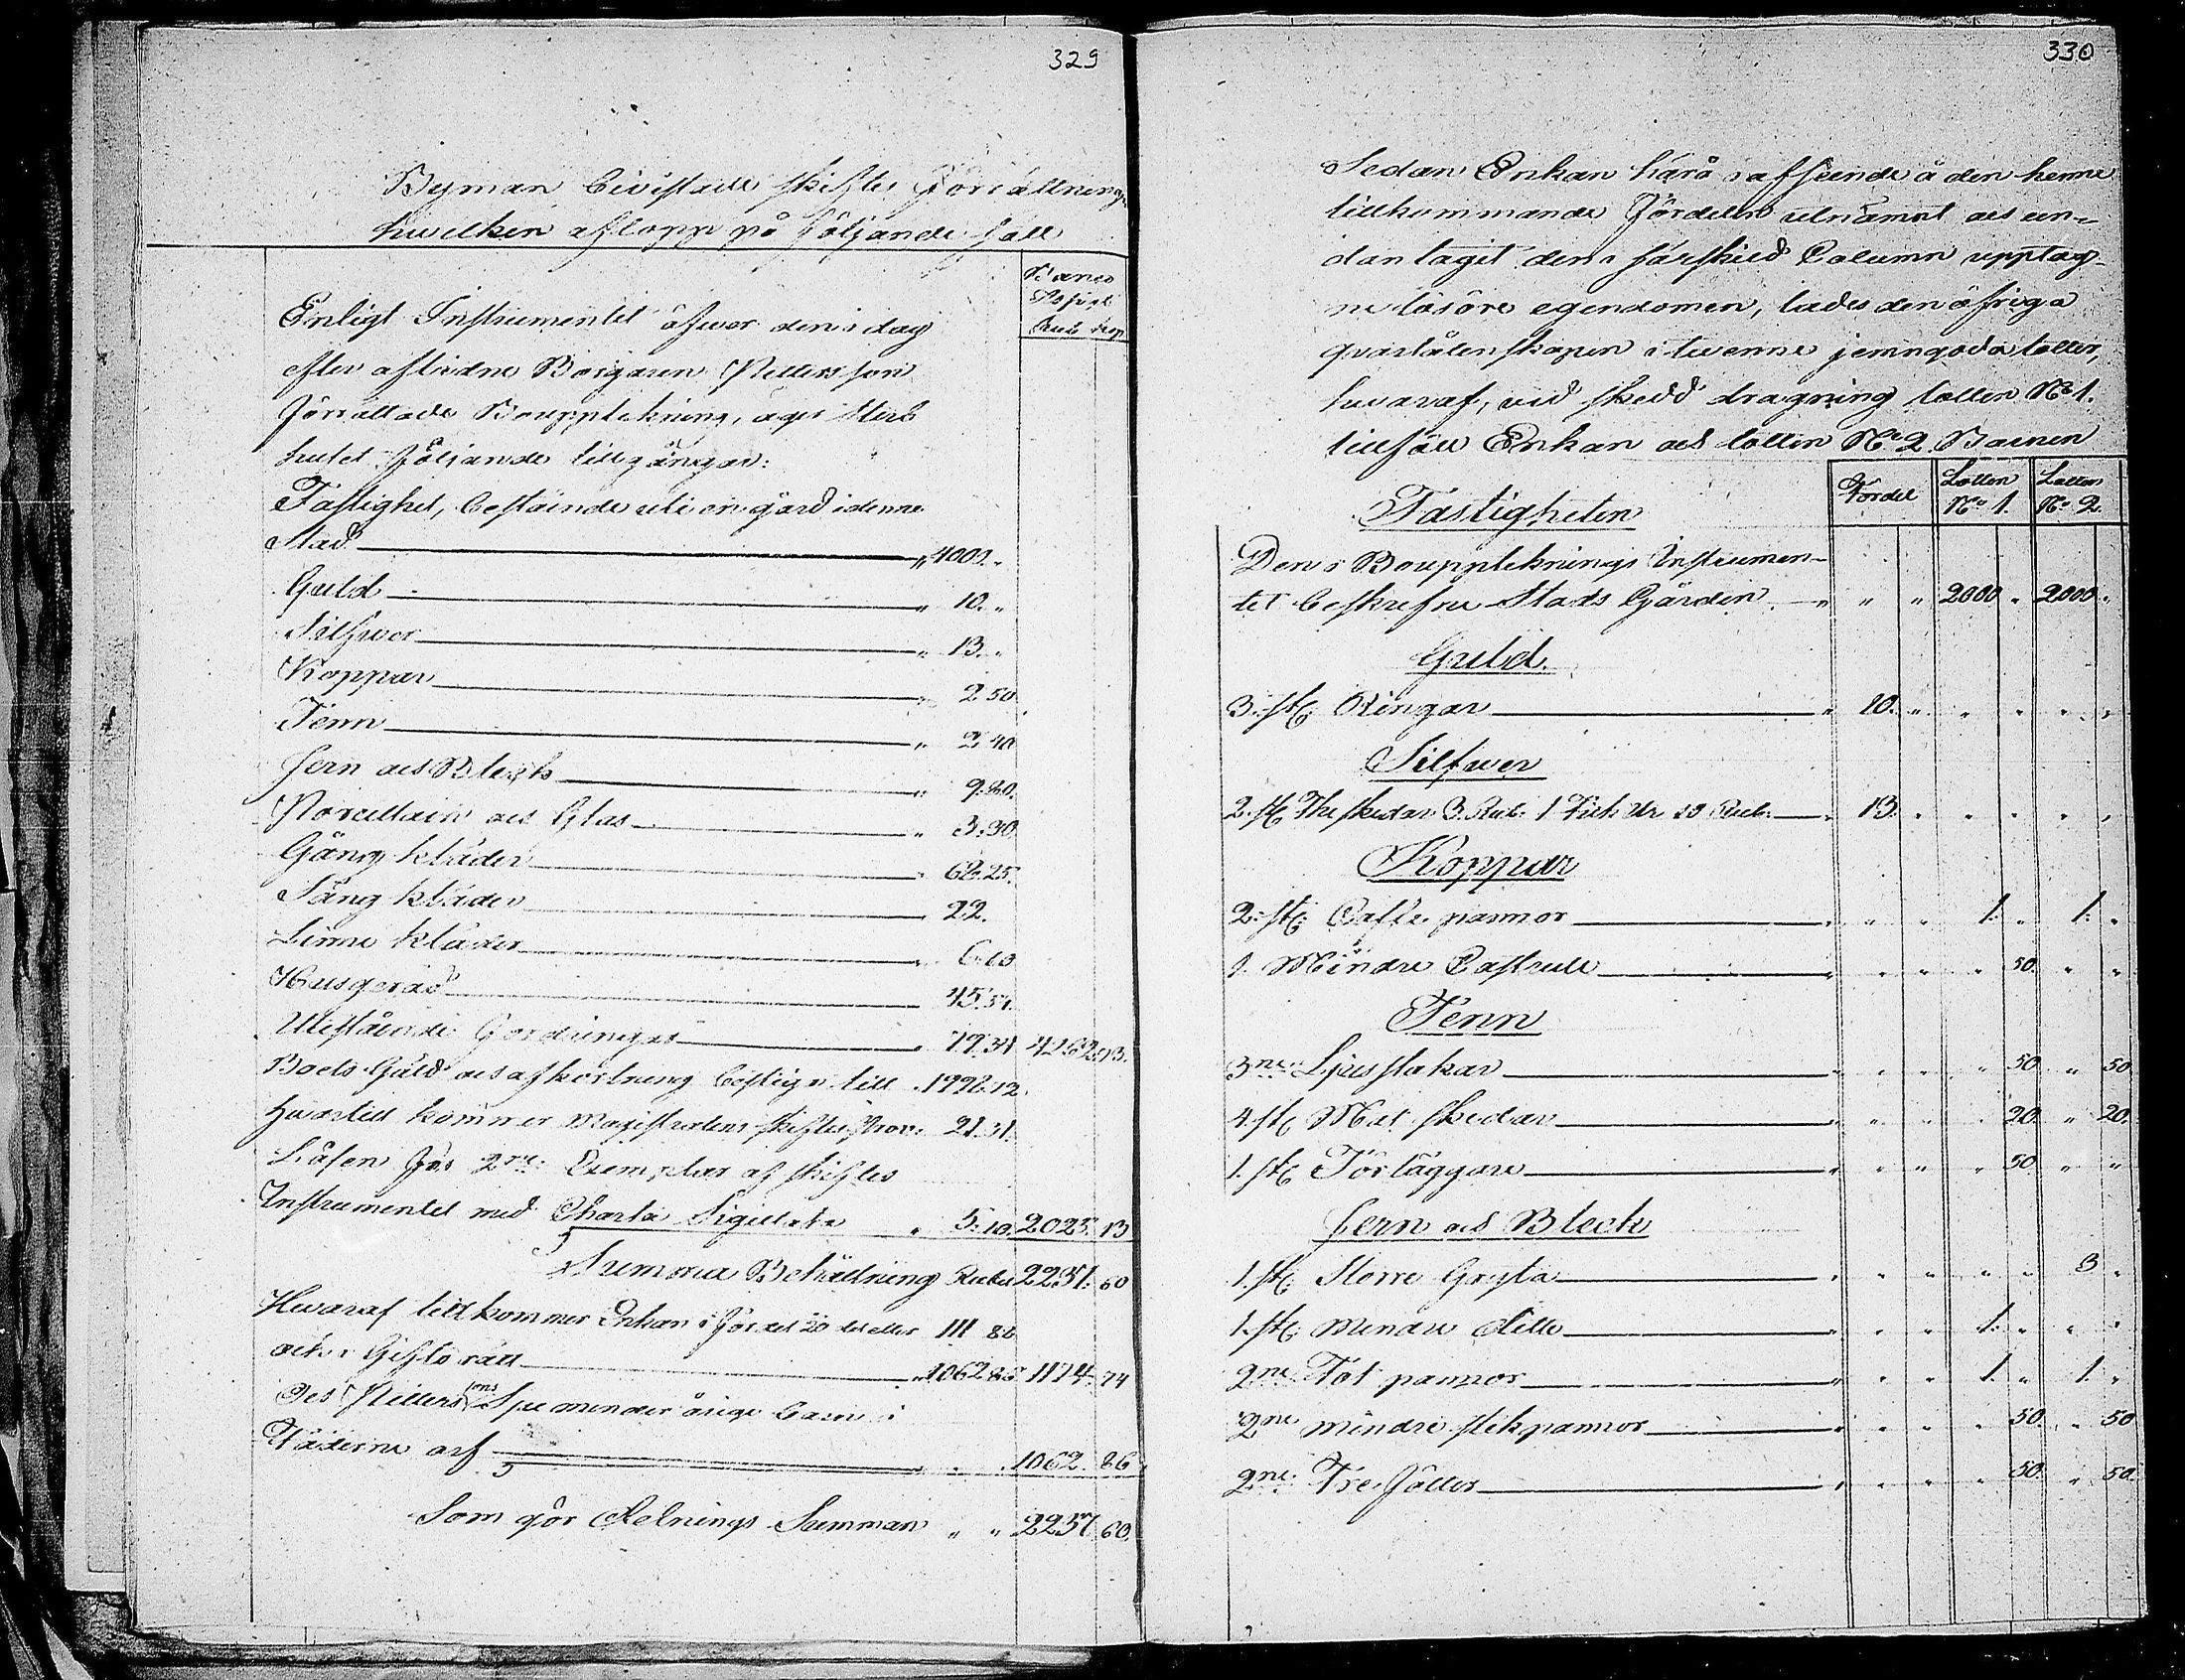 329
Byman bivistade skiftes Förrättning
hwilken aflopp på följande satt
Banco
Enligt Instrumentet öfwer den i dag
efter aflidne Borgaren Pettersson
förrättade Bouppteckning, äger Sterb
huset följande tillgångar:
Fastighet, bestående uti en gård i denne
Stad " 4000. "
Guld " 10. "
Silfwer " 13. "
Koppar " 2 50
Tenn " 2 40
Jern och Bleck " 9.80.
Porcellain och Glas " 3.30.
Gång kläder " 68.25.
Säng kläder 22.
Linne kläder
Husgeråd 45.51.
Utestående Fordringar 79.31 4282.73.
Boets Gäld och afkortning bestiger till 1998.12.
hvartill kommer Magistratens skiftes 21.31.
Lösen för 2ne Exemplar af skiftes
Instrumentet med Charta Sigillata " 5.10. 2025. 13
Summa Behållning 2237. 60
Hwaraf tillkommer Enkan i fördel 20 del eller 111 88
och i Giftorätt 1062 86 1174. 74
Och Pettersons minder åriga barn i
Fäderne arf 1062. 86
Som gör delnings Summan " " 2237 60.
330
Sedan Enkan härå i afseende å den henne
tillkommande Fördelen utnämnt och un-
dan tagit den i särskild Column upptag-
ne lösöre egendomen, lades den öfriga
qvarlåtenskapen i twenne jemngoda lotter,
hwaraf, vid skedd dragning lotten No 1.
tillföll Enkan och lotten No 2 Barnen
Fördel Lotten No 1. Lotten No 2.
Fastigheten
Den i Bouppteknings Instrumen-
tet beskrefne Stads Gården " " " 2000 " 2000 "
Guld.
3. st: Ringar " 10. " " " " "
Silfwer
2. st The skedar 3. 1 Fick Ur 10 " 13. " " " " "
Koppar
2. st: Caffe pannor " " " 1. " 1. "
1. Mindre Castrull " " " " 50. " "
Tenn
3ne Ljusstakar " " " " 50 " 50
4. st Mat skedar " " " " 20. " 20.
1. st Förläggare " " " " 50. " "
Jern och Bleck
1. st: Större Gryta " " " " " 3 "
1. st: mindre " " " 1. " " "
2ne Fot pannor " " " 1. " 1. "
2ne mindre stekpannor " " " " 50. " 50
2ne Tre fötter " " " " 50. " 50.